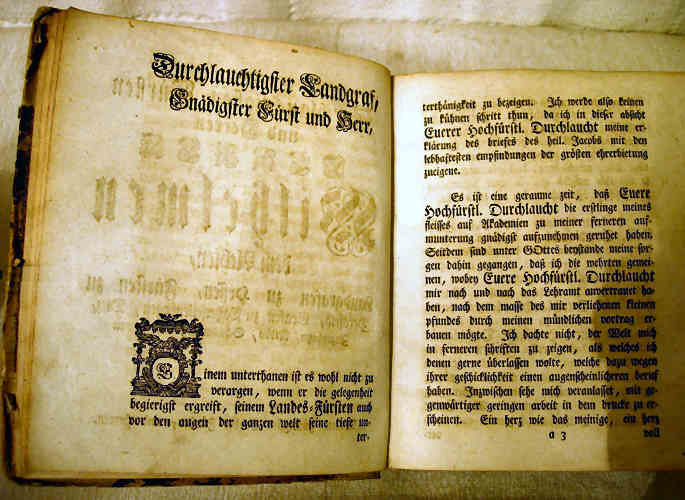 Durchlauchtigster Landgraf,
Gnädigster Fürst und Herr,
Einem unterthanen ist es wohl nicht zu
verargen, wenn er die gelegenheit
begierigst ergreift, seinem Landes-Fürsten auch
vor den augen der ganzen welt seine tiefe un-
ter-
terthänigkeit zu bezeigen. Ich werde also keinen
zu kühnen schritt thun, da ich in dieser absicht
Euerer Hochfürstl. Durchlaucht meine er-
klärung des briefes des heil. Jacobs mit den
lebhaftesten empfindungen der grösten ehrerbietung
zueigene.
Es ist eine geraume zeit, daß Euere
Hochfürstl. Durchlaucht die erstlinge meines
fleisses auf Akademien zu meiner ferneren auf-
munterung gnädigst aufzunehmen geruhet haben.
Seitdem sind unter GOttes beystande meine sor-
gen dahin gegangen, daß ich die wehrten gemei-
nen, wobey Euere Hochfürstl. Durchlaucht
mir nach und nach das Lehramt anvertrauet ha-
ben, nach dem masse des mir verliehenen kleinen
pfundes durch meinen mündlichen vortrag er-
bauen mögte. Ich dachte nicht, der Welt mich
in ferneren schriften zu zeigen, als welches ich
denen gerne überlassen wolte, welche dazu wegen
ihrer geschicklichkeit einen augenscheinlicheren beruf
haben. Inzwischen sehe mich veranlasset, mit ge-
genwärtiger geringen arbeit in dem drucke zu er-
scheinen. Ein herz wie das meinige, ein herz
a 3 voll